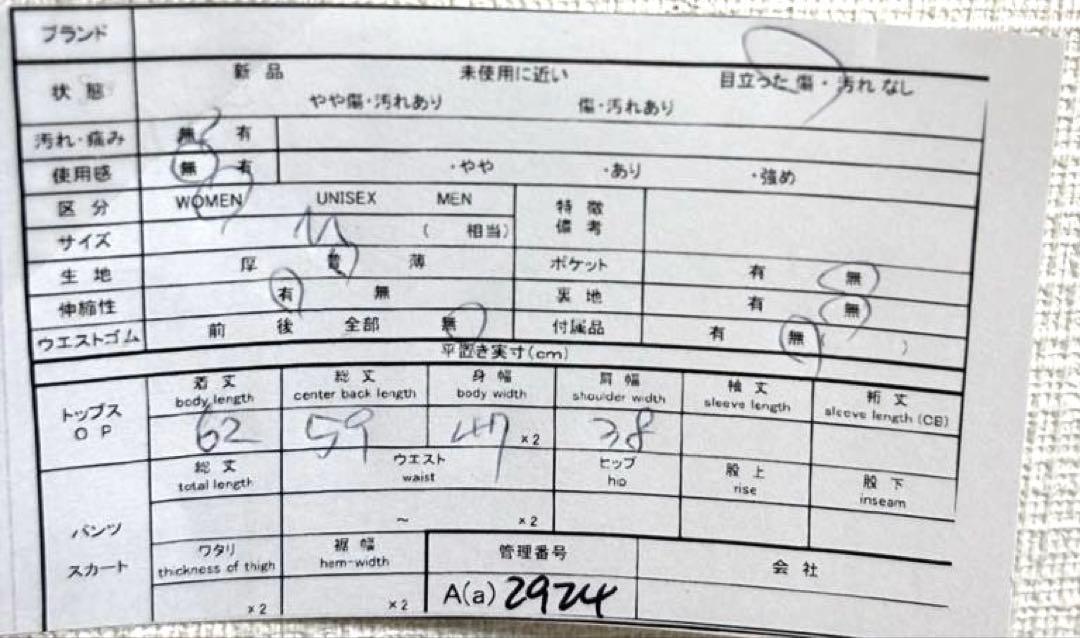 ブランド
状態 新品 未使用に近い 目立った傷・汚れなし
やや傷・汚れあり 傷・汚れあり
汚れ・痛み 無 有
使用感 無 有 ・やや ・あり ・強め
区分 WOMEN UNISEX MEN 特徴備考
サイズ M ( 相当)
生地 厚 普 薄 ポケット 有 無
伸縮性 有 無 裏地 有 無
ウエストゴム 前 後 全部 無 付属品 有 無 ( )
平置き実寸(cm)
トップス OP 着丈 総丈 身幅 肩幅 袖丈 裄丈
body length center back length body width shoulder width sleeve length sleeve length (CB)
62 59 47 ×2 38
パンツ スカート 総丈 ウエスト ヒップ 股上 股下
total length waist hip rise inseam
~ ×2
ワタリ 裾幅 管理番号 会社
thickness of thigh hem-width
×2 ×2 A(a) 2924